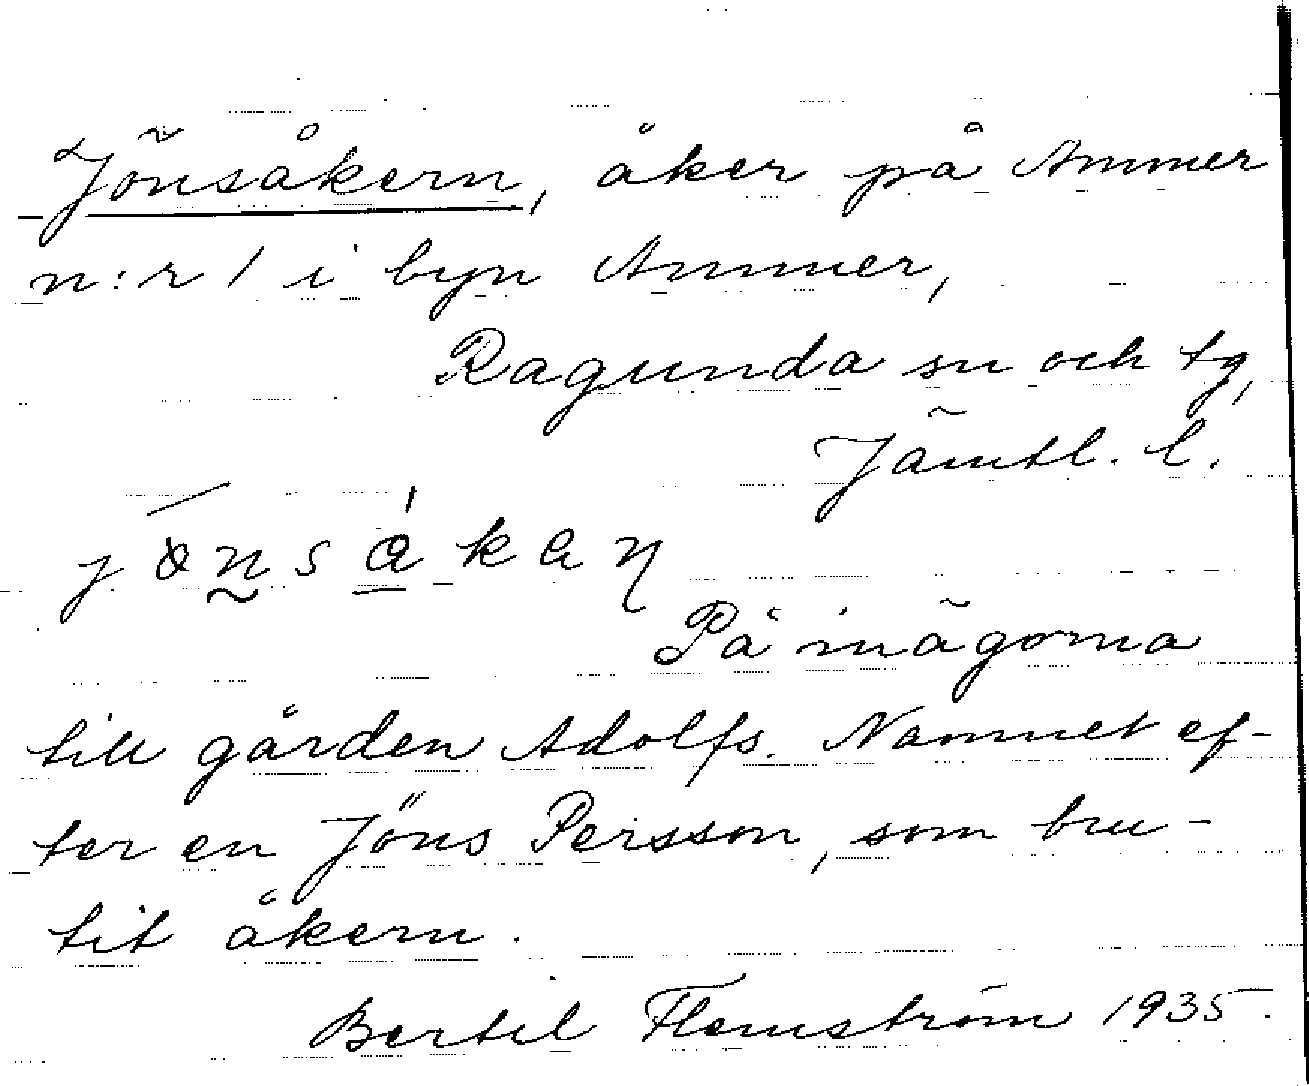 Jönsåkern, åker på Ammer
n:r 1 i byn Ammer,
Ragunda sn och tg,
Jämtl. l.
jönsåkaɳ
På inägorna
till gården Adolfs. Namnet ef-
ter en Jöns Persson, som bru-
tit åkern.
Bertil Flemström 1935.